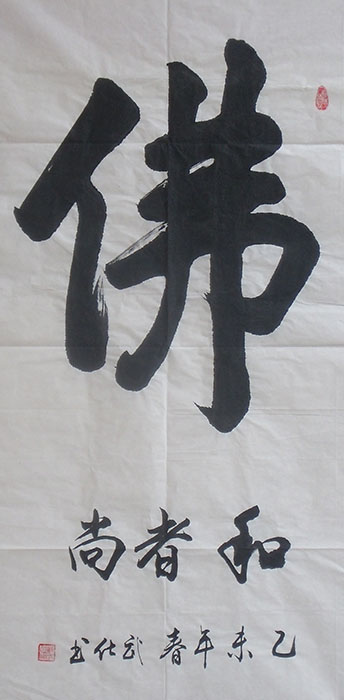 佛
和者尚
乙未年春武仕书